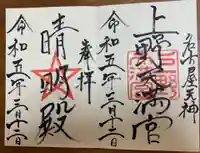 名古屋天神
上野天満宮
令和五年三月十二日
奉拝
晴明殿
令和五年三月十二日